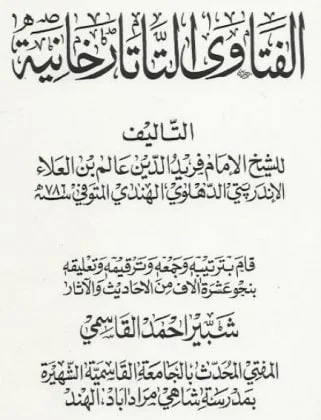 الفتاوى التاتارخانية
التأليف
للشيخ الإمام فريد الدين عالم بن العلاء
الإندربتي الدهلوي الهندي المتوفى سنة ٧٨٦هـ
قام بترتيبه وجمعه وترقيمه وتعليقه
بنحو عشرة آلاف من الأحاديث والآثار
شبير أحمد القاسمي
المفتي المحدث بالجامعة القاسمية الشهيرة
بمدرسة شاهي مراداباد، الهند